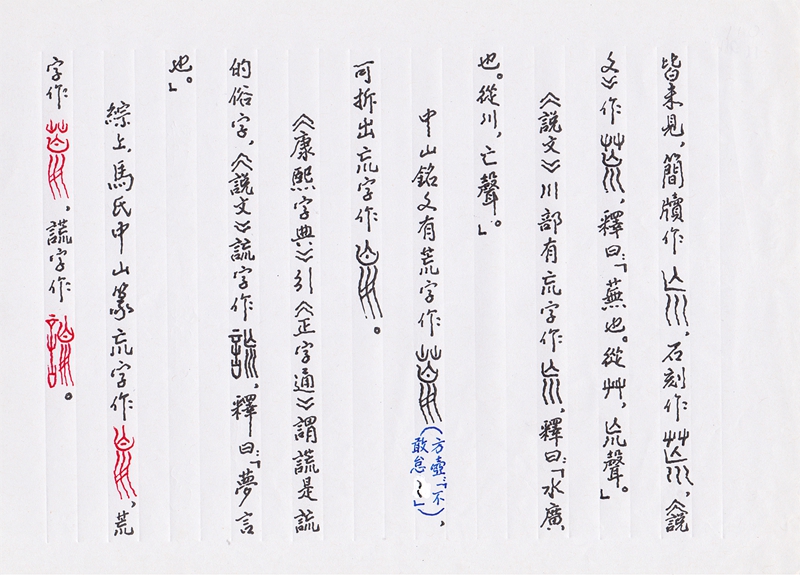 皆未見，簡牘作巟，石刻作荒，《說
文》作荒，釋曰：「蕪也。從艸，巟聲。」
《說文》川部有巟字作巟，釋曰：「水廣
也。從川，亡聲。」
中山銘文有荒字作荒（方壺：「不敢怠〻」），
可拆出巟字作巟。
《康熙字典》引《正字通》謂謊是詤
的俗字，《說文》詤字作詤，釋曰：「夢言
也。」
綜上，馬氏中山篆巟字作巟，荒
字作荒，謊字作謊。